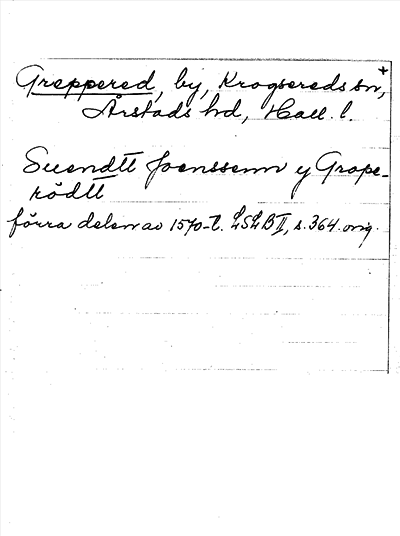 +
Greppered, by, Krogsereds sn,
Årstads hd, Hall. l.
Suendtt Joenssenn y Grope-
rödtt
förra delen av 1570-t. LSLB II, s. 364. orig.